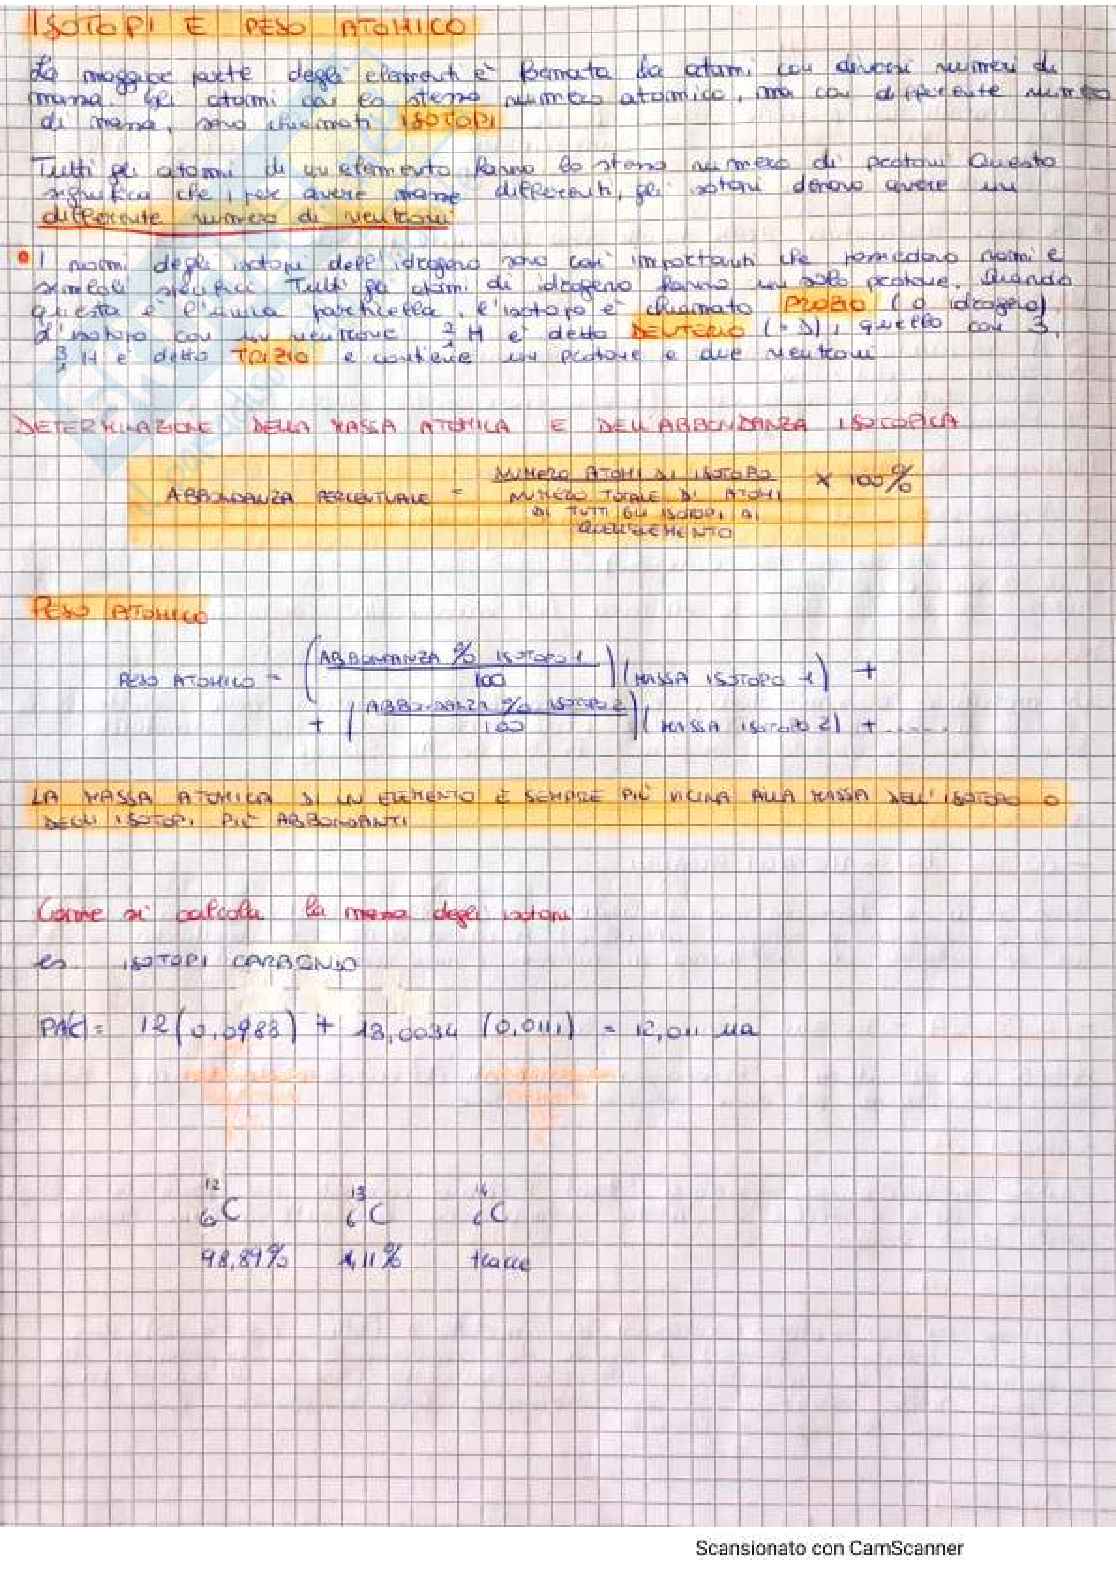 ISOTOPI E PESO ATOMICO
La maggior parte degli elementi è formata da atomi con diversi numeri di
massa. Gli atomi con lo stesso numero atomico, ma con differente numero
di massa, sono chiamati ISOTOPI
Tutti gli atomi di un elemento hanno lo stesso numero di protoni Questo
significa che, per avere masse differenti, gli isotopi devono avere un
differente numero di neutroni
• I nomi degli isotopi dell'idrogeno sono così importanti che possiedono nomi e
simboli specifici Tutti gli atomi di idrogeno hanno un solo protone. Quando
questa è l'unica particella, l'isotopo è chiamato PROZIO (o idrogeno)
L'isotopo con un neutrone ²₁H è detto DEUTERIO (D), quello con 3,
³₁H è detto TRIZIO e contiene un protone e due neutroni
DETERMINAZIONE DELLA MASSA ATOMICA E DELL'ABBONDANZA ISOTOPICA
NUMERO ATOMI DI ISOTOPO
ABBONDANZA PERCENTUALE = × 100%
NUMERO TOTALE DI ATOMI
DI TUTTI GLI ISOTOPI DI
QUELL'ELEMENTO
PESO ATOMICO
PESO ATOMICO = (ABBONDANZA % ISOTOPO 1 / 100) (MASSA ISOTOPO 1) +
+ (ABBONDANZA % ISOTOPO 2 / 100) (MASSA ISOTOPO 2) + ......
LA MASSA ATOMICA DI UN ELEMENTO È SEMPRE PIÙ VICINA ALLA MASSA DELL'ISOTOPO O
DEGLI ISOTOPI PIÙ ABBONDANTI
Come si calcola la massa degli isotopi
es. ISOTOPI CARBONIO
PA(C) = 12 (0,0983) + 13,0034 (0,0111) = 12,011 ua
¹²₆C ¹³₆C ¹⁴₆C
98,89% 1,11% tracce
Scansionato con CamScanner